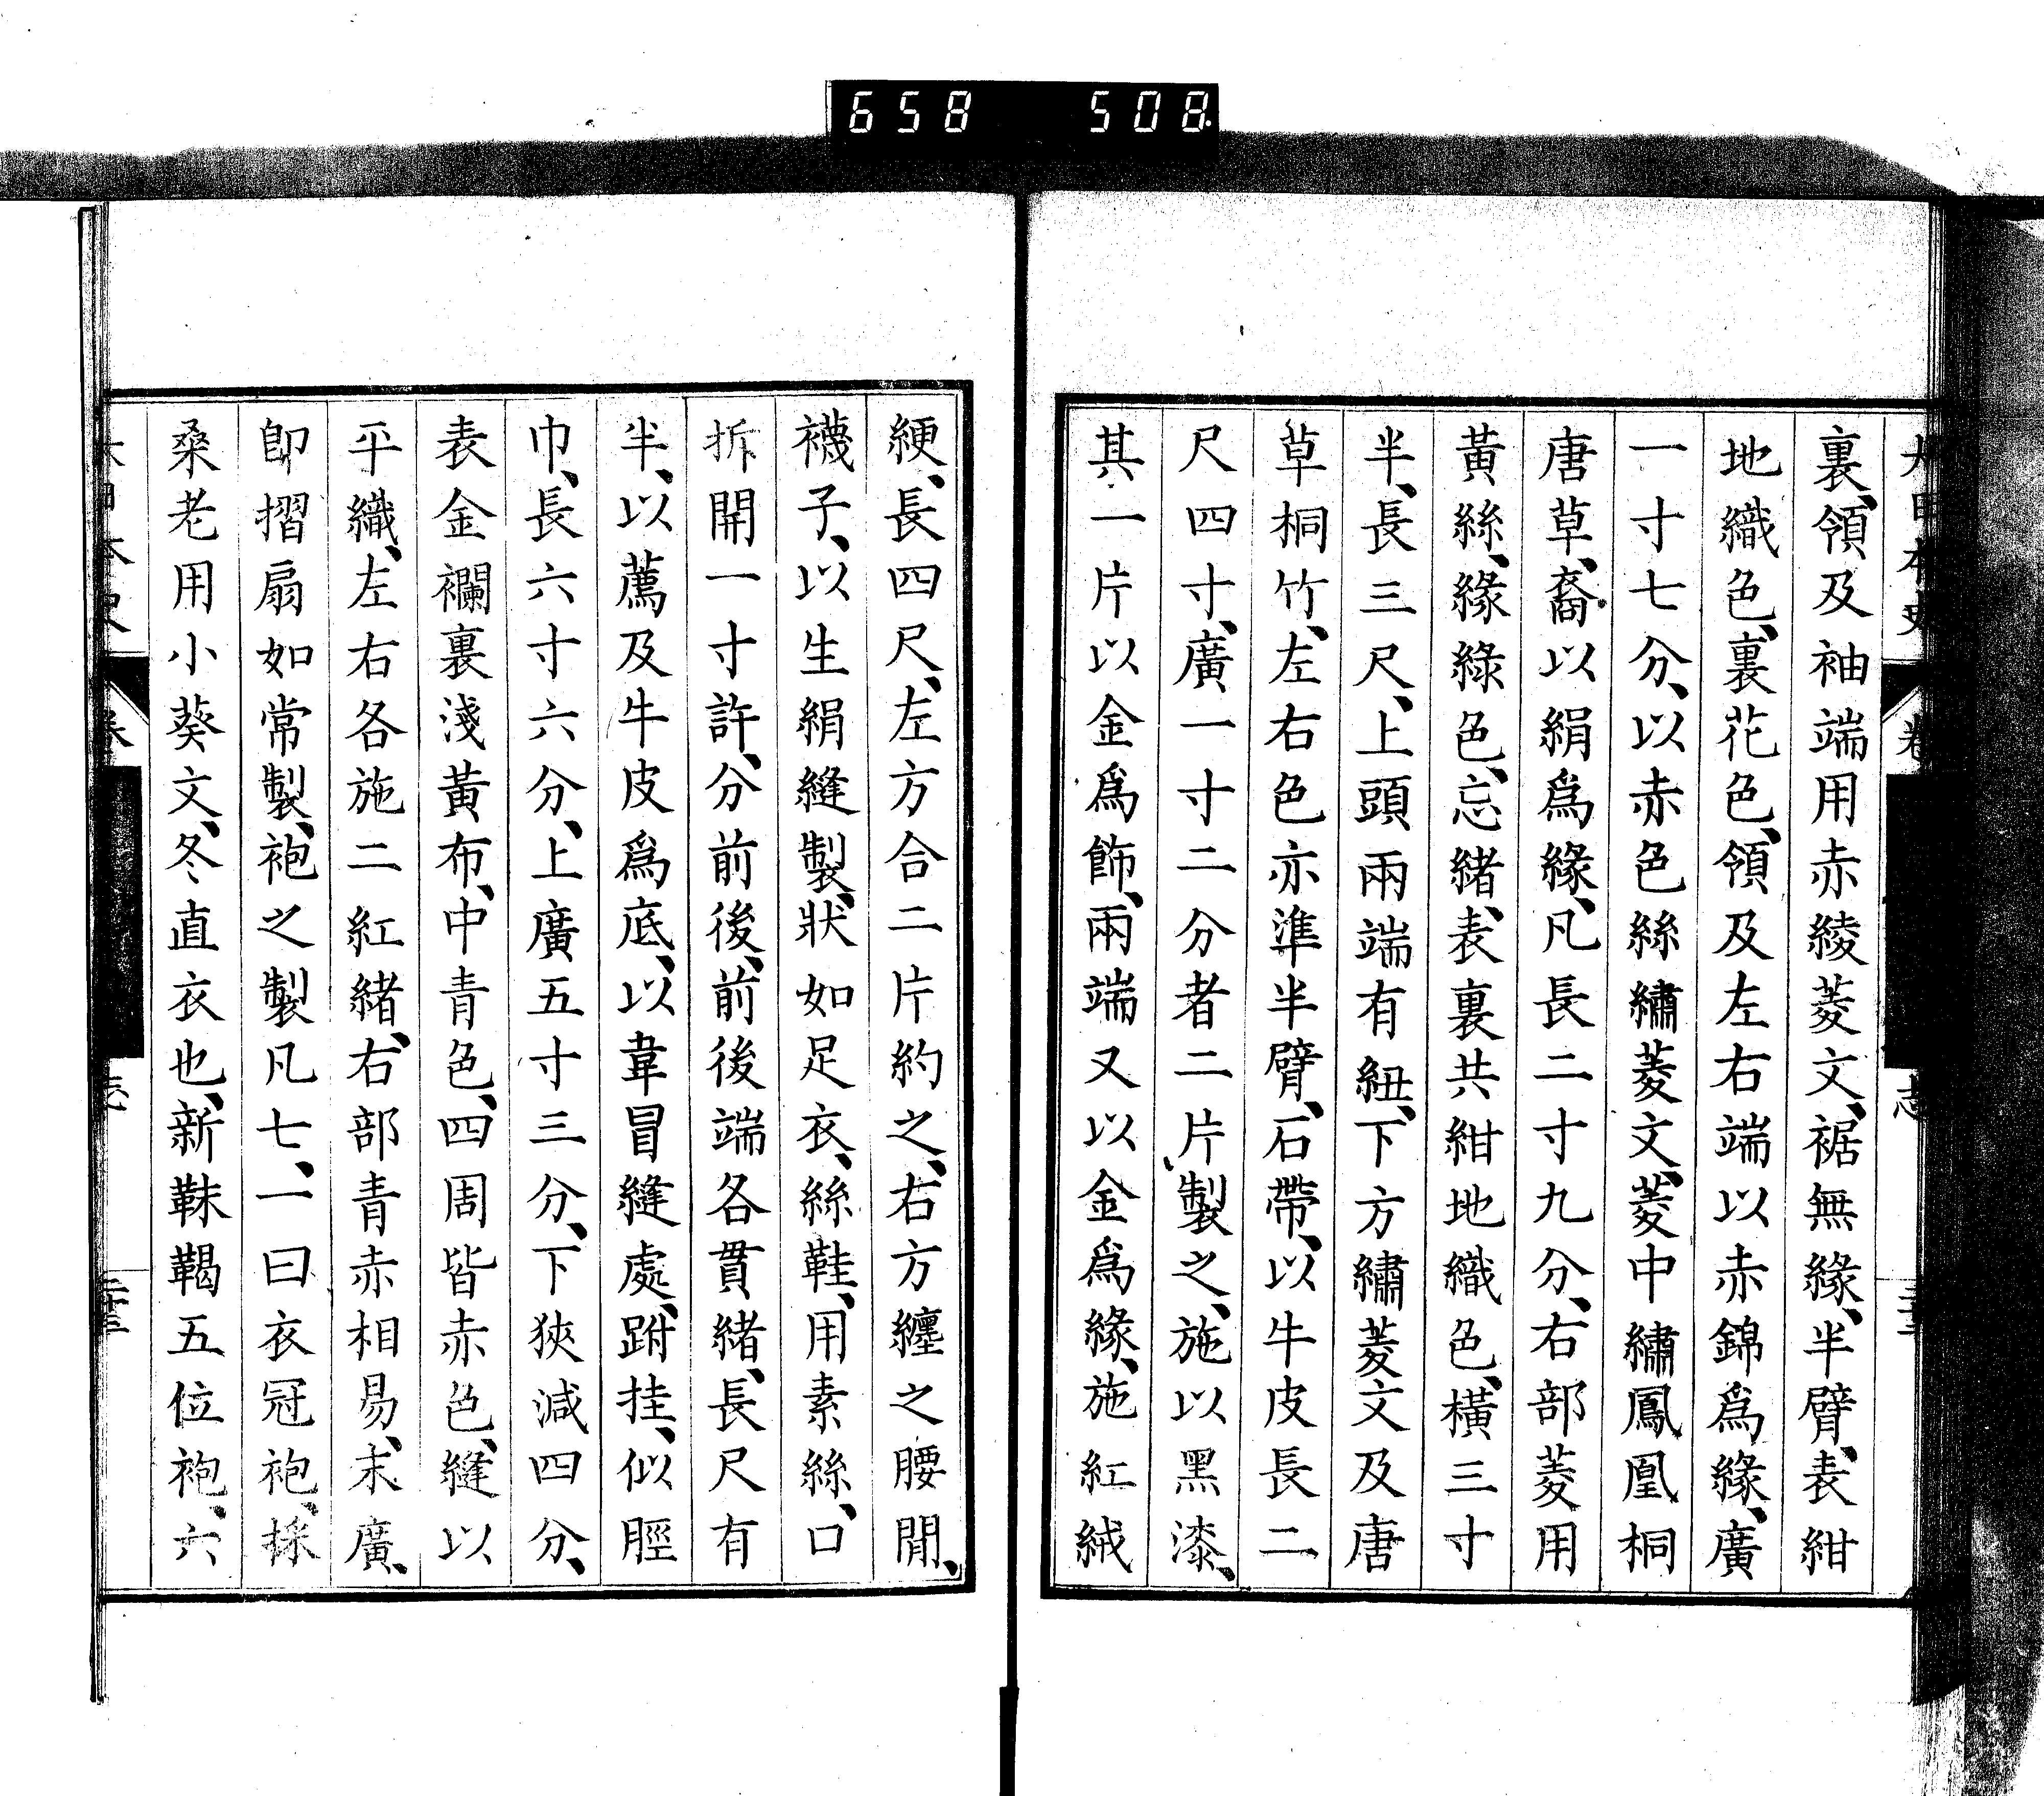 658 508
裏、領及袖端用赤綾菱文、裾無緣、半臂、表紺
地織色、裏花色、領及左右端以赤錦爲緣、廣
一寸七分、以赤色絲繡菱文、菱中繡鳳凰桐
唐草、裔以絹爲緣、凡長二寸九分、右部菱用
黃絲、緣綠色、忘緖、表裏共紺地織色、橫三寸
半、長三尺、上頭兩端有紐、下方繡菱文及唐
草桐竹、左右色亦準半臂、石帶、以牛皮長二
尺四寸、廣一寸二分者二片、製之、施以黑漆、
其一片以金爲飾、兩端又以金爲緣、施紅絨
綆、長四尺、左方合二片約之、右方纏之腰閒、
襪子、以生絹縫製、狀如足衣、絲鞋、用素絲、口
拆開一寸許、分前後、前後端各貫緖、長尺有
半、以薦及牛皮爲底、以韋冒縫處、跗挂、似脛
巾、長六寸六分、上廣五寸三分、下狹減四分、
表金襴裏淺黃布、中青色、四周皆赤色、縫以
平織、左右各施二紅緖、右部青赤相易、末廣、
卽摺扇如常製、袍之製凡七、一曰衣冠袍、採
桑老用小葵文、冬直衣也、新靺鞨五位袍、六